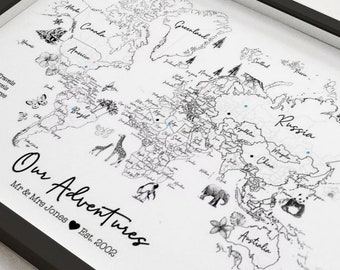 Canada
Greenland
America
Iceland
Russia
Brazil
China
Australia
Our Adventures
Mr & Mrs Jones ♥ Est. 2002